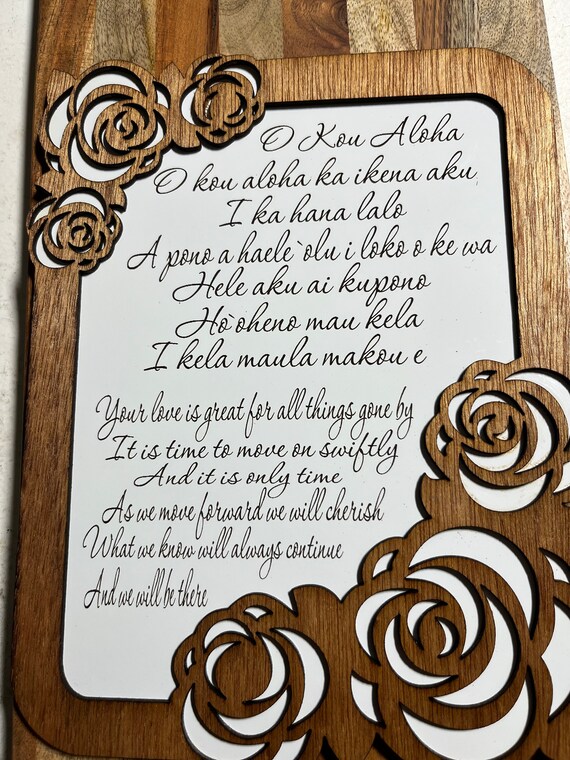 O Kou Aloha
O kou aloha ka ikena aku
I ka hana lalo
A pono a haele `olu i loko o ke wa
Hele aku ai kupono
Ho`oheno mau kela
I kela maula makou e
Your love is great for all things gone by
It is time to move on swiftly
And it is only time
As we move forward we will cherish
What we know will always continue
And we will be there